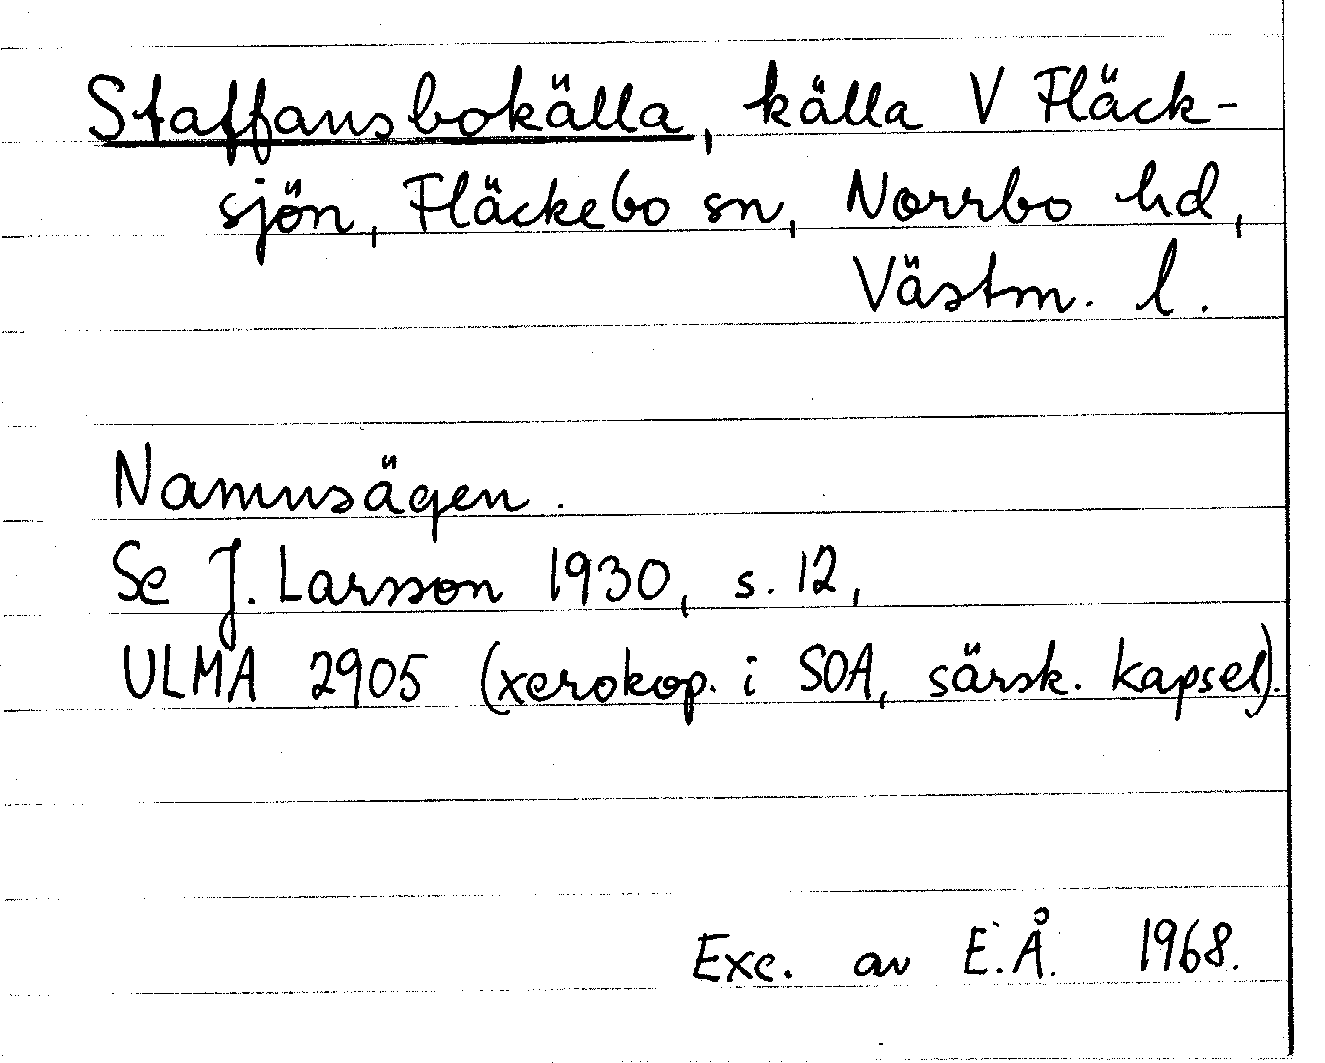 Staffansbokälla, källa V Fläck-
sjön, Fläckebo sn, Norrbo hd,
Västm. l.
Namnsägen.
Se J. Larsson 1930, s. 12,
ULMA 2905 (xerokop. i SOA, särsk. kapsel).
Exc. av E.Å. 1968.